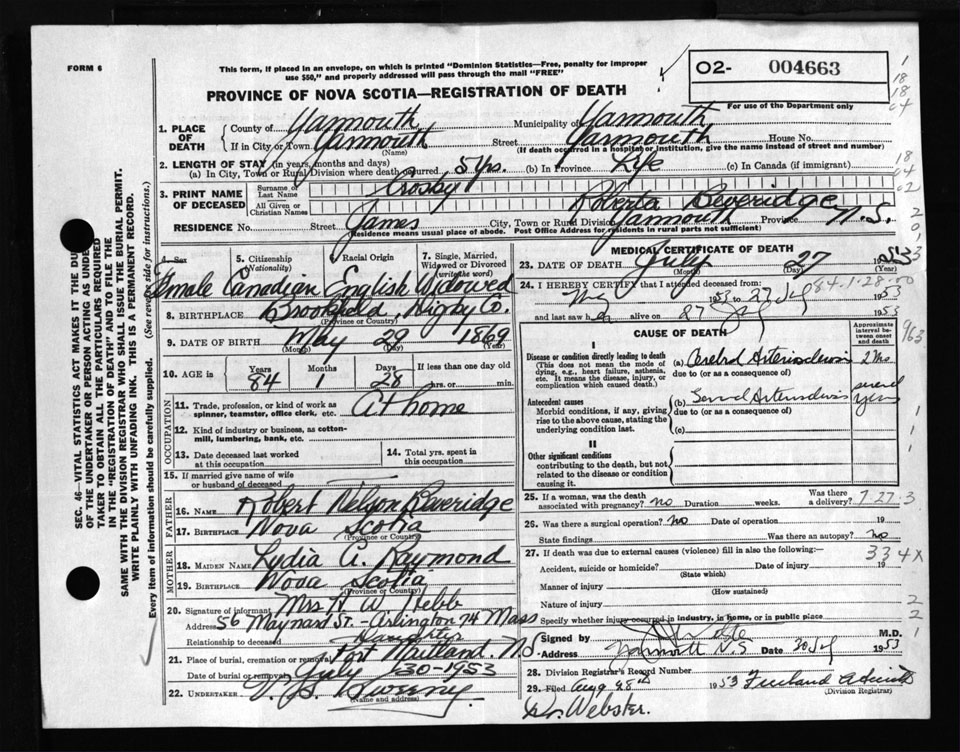 FORM 6
This form, if placed in an envelope, on which is printed "Dominion Statistics—Free, penalty for improper
use $50," and properly addressed will pass through the mail "FREE"
02- 004663
For use of the Department only
PROVINCE OF NOVA SCOTIA—REGISTRATION OF DEATH
1. PLACE OF DEATH
County of Yarmouth Municipality of Yarmouth
If in City or Town Yarmouth Street Yarmouth House No.
(Name) (If death occurred in a hospital or institution, give name instead of street and number)
2. LENGTH OF STAY (in years, months and days)
(a) In City, Town or Rural Division where death occurred, 5 yrs. (b) In Province Life (c) In Canada (if immigrant)
3. PRINT NAME OF DECEASED
Surname or Last Name Crosby
All Given or Christian Names Roberta Beveridge
RESIDENCE No. Street James City, Town or Rural Division Yarmouth Province N.S.
(Residence means usual place of abode. Post Office Address for residents in rural parts not sufficient)
4. Sex 5. Citizenship (Nationality) Racial Origin 7. Single, Married, Widowed or Divorced (write the word)
Female Canadian English Widowed
8. BIRTHPLACE Brookfield, Digby Co.
(Province or Country)
9. DATE OF BIRTH May 29 1869
(Month) (Day) (Year)
10. AGE in Years Months Days If less than one day
84 1 28 hrs. or min.
OCCUPATION
11. Trade, profession or kind of work as
spinner, teamster, office clerk, etc. At home
12. Kind of industry or business, as cotton-
mill, lumbering, bank, etc.
13. Date deceased last worked at this occupation
14. Total yrs. spent in this occupation
15. If married give name of wife
or husband of deceased
FATHER
16. NAME Robert Nelson Beveridge
17. BIRTHPLACE Nova Scotia
(Province or Country)
MOTHER
18. MAIDEN NAME Lydia A. Raymond
19. BIRTHPLACE Nova Scotia
(Province or Country)
20. Signature of informant Mrs H. W. Hebb
Address 56 Maynard St. - Arlington 74 Mass
Relationship to deceased Daughter
21. Place of burial, cremation or removal Port Maitland. N.S.
Date of burial or removal July 30-1953
22. UNDERTAKER V. S. Sweeny
(Name and address)
SEC. 46—VITAL STATISTICS ACT MAKES IT THE DUTY
OF THE UNDERTAKER OR PERSON ACTING AS UNDER-
TAKER TO OBTAIN ALL THE PARTICULARS REQUIRED
IN THE "REGISTRATION OF DEATH" AND TO FILE THE
SAME WITH THE DIVISION REGISTRAR WHO SHALL ISSUE THE BURIAL PERMIT.
WRITE PLAINLY WITH UNFADING INK. THIS IS A PERMANENT RECORD.
Every item of information should be carefully supplied. (See reverse side for instructions.)
MEDICAL CERTIFICATE OF DEATH
23. DATE OF DEATH July 27 1953
(Month) (Day) (Year)
24. I HEREBY CERTIFY that I attended deceased from
1953 to 27 July 1953
84-1-28-00
and last saw h alive on 27 July 1953
CAUSE OF DEATH
Approximate interval between onset and death
I
Disease or condition directly leading to death
(This does not mean the mode of dying, e.g., heart failure, asthenia, etc. It means the disease, injury, or complication which caused death.)
(a) Cerebral Arteriosclerosis
due to (or as a consequence of)
Antecedent causes
Morbid conditions, if any, giving rise to the above cause, stating the underlying condition last.
(b) Arteriosclerosis several years
due to (or as a consequence of)
(c)
II
Other significant conditions
contributing to the death, but not related to the disease or condition causing it.
25. If a woman, was the death associated with pregnancy? no Duration weeks. Was there a delivery? 7-27-3
26. Was there surgical operation? no Date of operation 19
State findings Was there an autopsy? no
27. If death was due to external causes (violence) fill in also the following:—
334X
Accident, suicide or homicide? Date of injury 19
(State which)
Manner of injury
(How sustained)
Nature of injury
Specify whether injury occurred in industry, in home, or in public place
Signed by M.D.
Address Yarmouth N.S Date 30 July 1953
28. Division Registrar's Record Number
29. Filed Aug 28th 1953 Freeland
(Division Registrar)
Dr Webster.